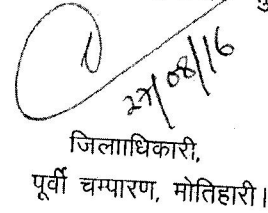 27/08/16
जिलााधिकारी,
पूर्वी चम्पारण, मोतिहारी।